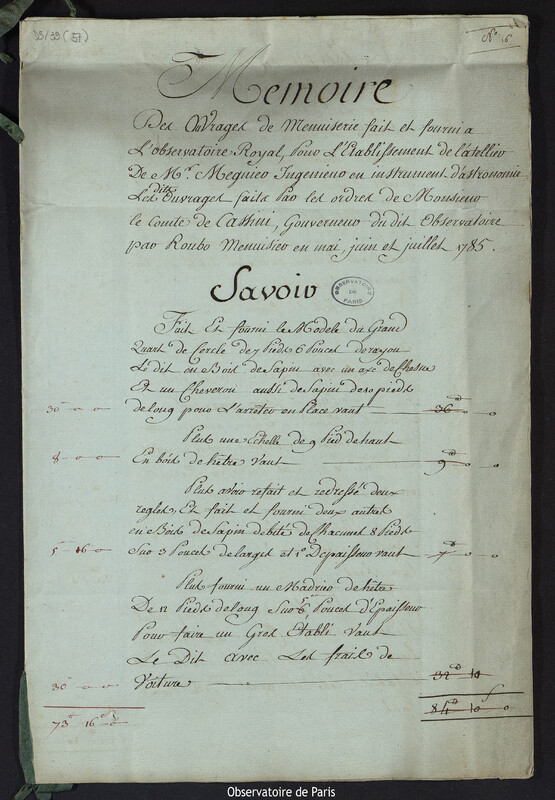 D5/39 (57)
N° 16
Memoire
Des Ouvrages de Menuiserie fait et fourni a
L'observatoire Royal, Pour L'Etablissement de l'atellier
De Mr. Megnier Ingenieur en instrument d'astronomie
Les dits Ouvrages faits Par les ordres de Monsieur
le Comte de Cassini, Gouverneur du dit Observatoire
par Roubo Menuisier en mai, juin et juillet 1785.
Savoir
OBSERVATOIRE DE PARIS
Fait Et fourni le Modele du Grand
Quart de Cercle de 7 Pieds 6 Pouces de rayon
Le dit en Bois de Sapin avec un axe de Chesne
Et un Cheveron aussi de Sapin de 10 pieds
30 - o - o de long pour L'arreter en Place vaut 36 - o - o
Plus une Echelle de 9 Pied de haut
8 - o - o En bois de hetre vaut 9 - o - o
Plus avoir refait et redressé deux
regles, Et fait et fourni deux autres
en Bois de Sapin de Chacune 8 Pieds
5 - 16 - o Sur 3 Pouces de larges et 1° D'epaisseur vaut 7 - o - o
Plus fourni un Madrier de hetre
De 12 Pieds de long Sur 6 Pouces d'Epaisseur
Pour faire un Gros Etabli vaut
Le Dit avec Les frais de
30 - o - o Voiture 32 10
73 16 84 10 o
Observatoire de Paris